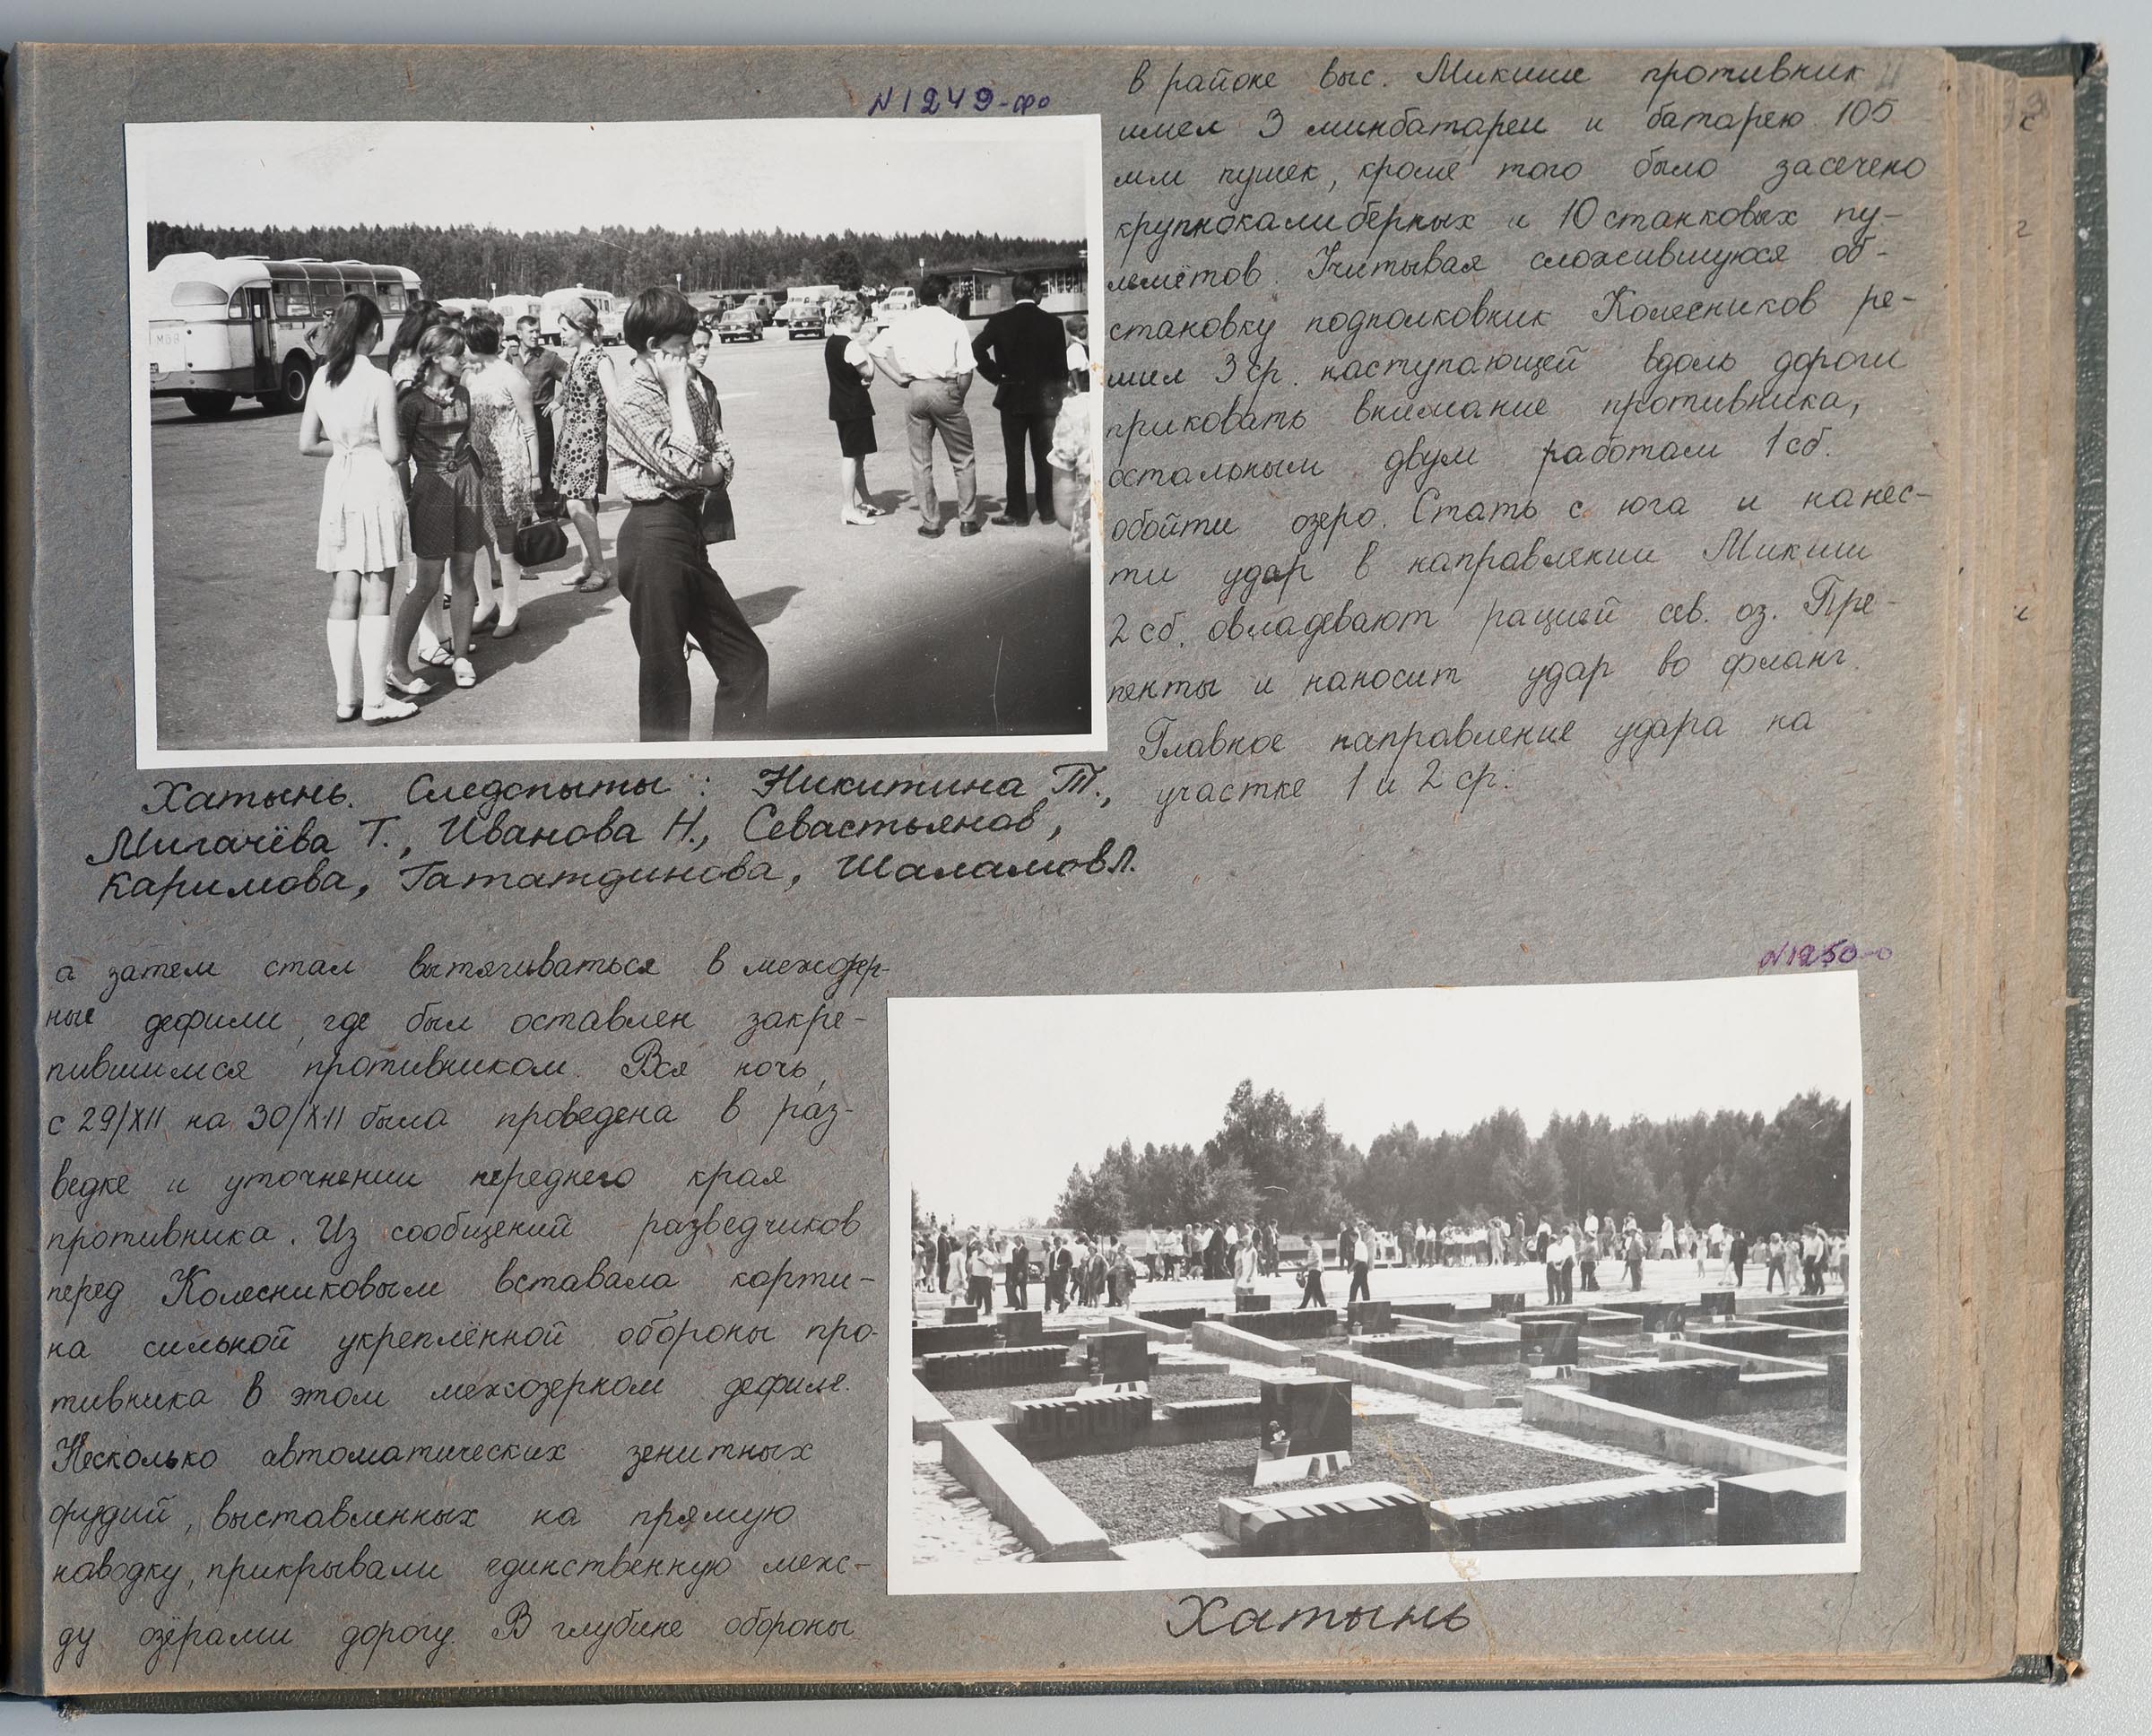 N1249-фо
Хатынь. Следопыты: Никитина Т.,
Мигачёва Т., Иванова Н., Севастьянов,
Каримова, Гататдинова, Шаламов Л.
а затем стал вытягиваться в межозер-
ные дефили, где был оставлен закре-
пившимся противником. Вся ночь,
с 29/XII на 30/XII была проведена в раз-
ведке и уточнении переднего края
противника. Из сообщений разведчиков
перед Колесниковым вставала карти-
на сильной укреплённой обороны про-
тивника в этом межозерном дефиле.
Несколько автоматических зенитных
орудий, выставленных на прямую
наводку, прикрывали единственную меж-
ду озёрами дорогу. В глубине обороны
в районе выс. Микиши противник
имел 3 минбатареи и батарею 105
мм пушек, кроме того было засечено
крупнокалиберных и 10 станковых пу-
лемётов. Учитывая сложившуюся об-
становку подполковник Колесников ре-
шил 3 ср. наступающей вдоль дороги
приковать внимание противника,
остальным двум работам 1 сб.
обойти озеро. Стать с юга и нанес-
ти удар в направлении Микиши
2 сб. овладевают рацией сев. оз. Пре-
пенты и наносит удар во фланг.
Главное направление удара на
участке 1 и 2 ср.
N1250-о
Хатынь